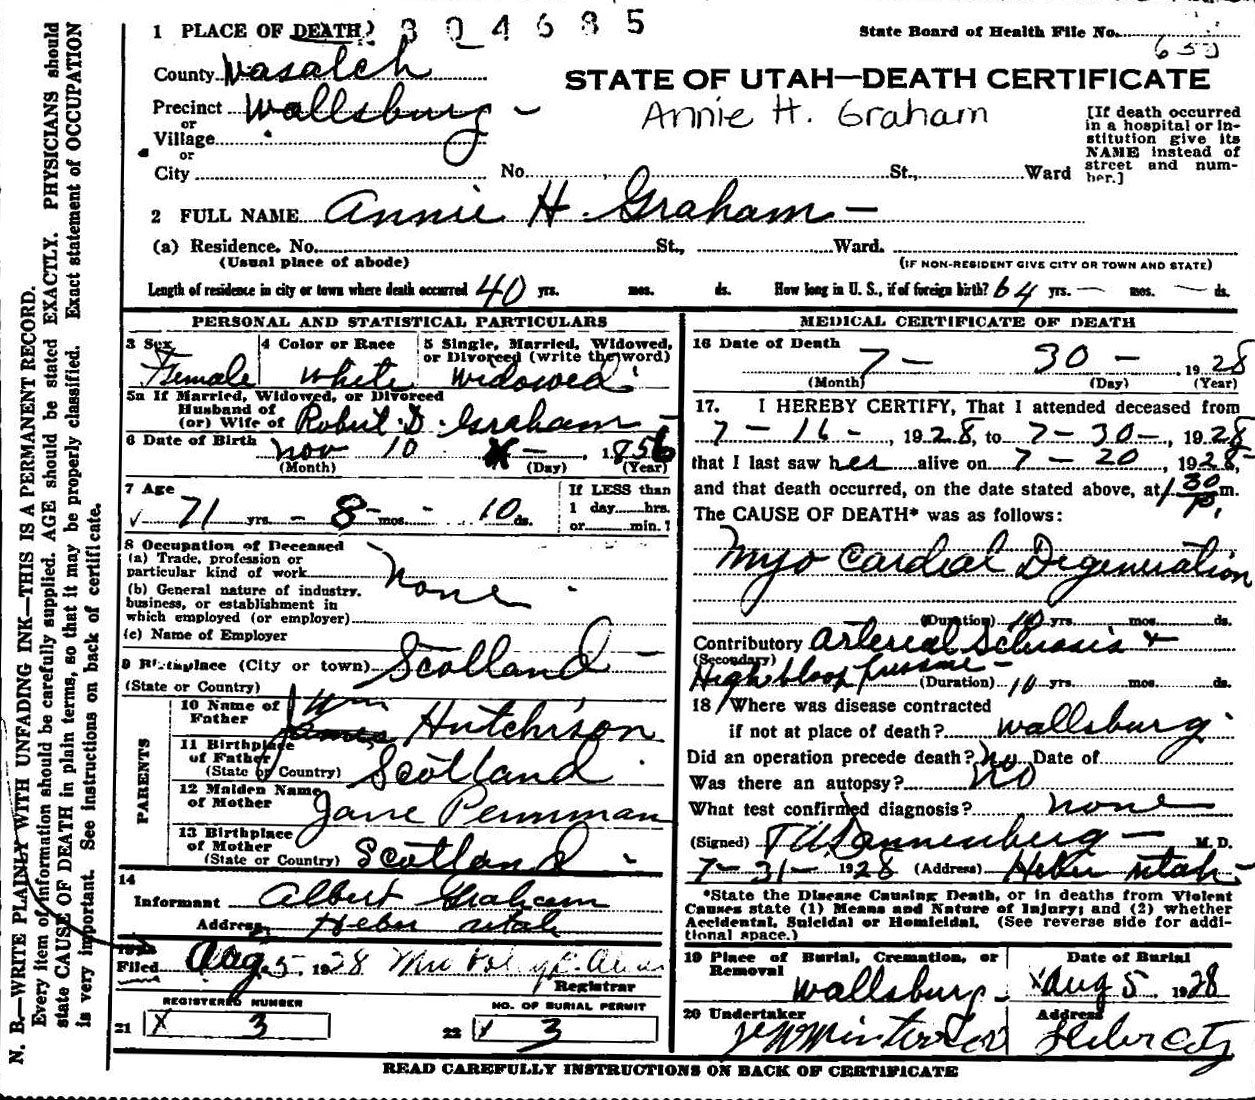 1 PLACE OF DEATH
State Board of Health File No.
County Wasatch
STATE OF UTAH—DEATH CERTIFICATE
Precinct Wallsburg
Annie H. Graham
or
Village
or
City No. St., Ward
[If death occurred
in a hospital or in-
stitution give its
NAME instead of
street and num-
ber.]
2 FULL NAME Annie H. Graham
(a) Residence. No. St., Ward.
(Usual place of abode)
(IF NON-RESIDENT GIVE CITY OR TOWN AND STATE)
Length of residence in city or town where death occurred 40 yrs. mos. ds. How long in U. S., if of foreign birth? 64 yrs. — mos. — ds.
PERSONAL AND STATISTICAL PARTICULARS
3 Sex
Female
4 Color or Race
White
5 Single, Married, Widowed,
or Divorced (write the word)
Widowed
5a If Married, Widowed, or Divorced
Husband of
(or) Wife of Robert D. Graham
6 Date of Birth
Nov 10 — , 1856
(Month) (Day) (Year)
7 Age
71 yrs. - 8 - mos. - 10 ds.
If LESS than
1 day hrs.
or min.?
8 Occupation of Deceased
(a) Trade, profession or
particular kind of work None
(b) General nature of industry,
business, or establishment in
which employed (or employer)
(c) Name of Employer
9 Birthplace (City or town) Scotland
(State or Country)
PARENTS
10 Name of
Father
Wm
James Hutchison
11 Birthplace
of Father
(State or Country) Scotland
12 Maiden Name
of Mother Jane Penman
13 Birthplace
of Mother
(State or Country) Scotland
14
Informant Albert Graham
Address Heber Utah
Filed Aug 5 1928
Registrar
REGISTERED NUMBER
21 X 3
NO. OF BURIAL PERMIT
22 X 3
MEDICAL CERTIFICATE OF DEATH
16 Date of Death
7 — 30 — , 1928
(Month) (Day) (Year)
17. I HEREBY CERTIFY, That I attended deceased from
7 — 16 — , 1928, to 7 — 30 — , 1928
that I last saw her alive on 7 — 20 , 1928,
and that death occurred, on the date stated above, at 1 30 P. m.
The CAUSE OF DEATH* was as follows:
Myo Cardial Degeneration
(Duration) 10 yrs. mos. ds.
Contributory Arterial Sclerosis +
(Secondary)
High blood pressure —
(Duration) 10 yrs. mos. ds.
18 Where was disease contracted
if not at place of death? Wallsburg
Did an operation precede death? No Date of
Was there an autopsy? No
What test confirmed diagnosis? none
(Signed) Dannenberg — M. D.
7 — 31 — 1928 (Address) Heber Utah
*State the Disease Causing Death, or in deaths from Violent
Causes state (1) Means and Nature of Injury; and (2) whether
Accidental, Suicidal or Homicidal. (See reverse side for addi-
tional space.)
19 Place of Burial, Cremation, or
Removal
Wallsburg
Date of Burial
X Aug 5 1928
20 Undertaker
Address
Heber City
READ CAREFULLY INSTRUCTIONS ON BACK OF CERTIFICATE
N. B.—WRITE PLAINLY WITH UNFADING INK—THIS IS A PERMANENT RECORD.
Every item of information should be carefully supplied. AGE should be stated EXACTLY. PHYSICIANS should
state CAUSE OF DEATH in plain terms, so that it may be properly classified. Exact statement of OCCUPATION
is very important. See instructions on back of certificate.